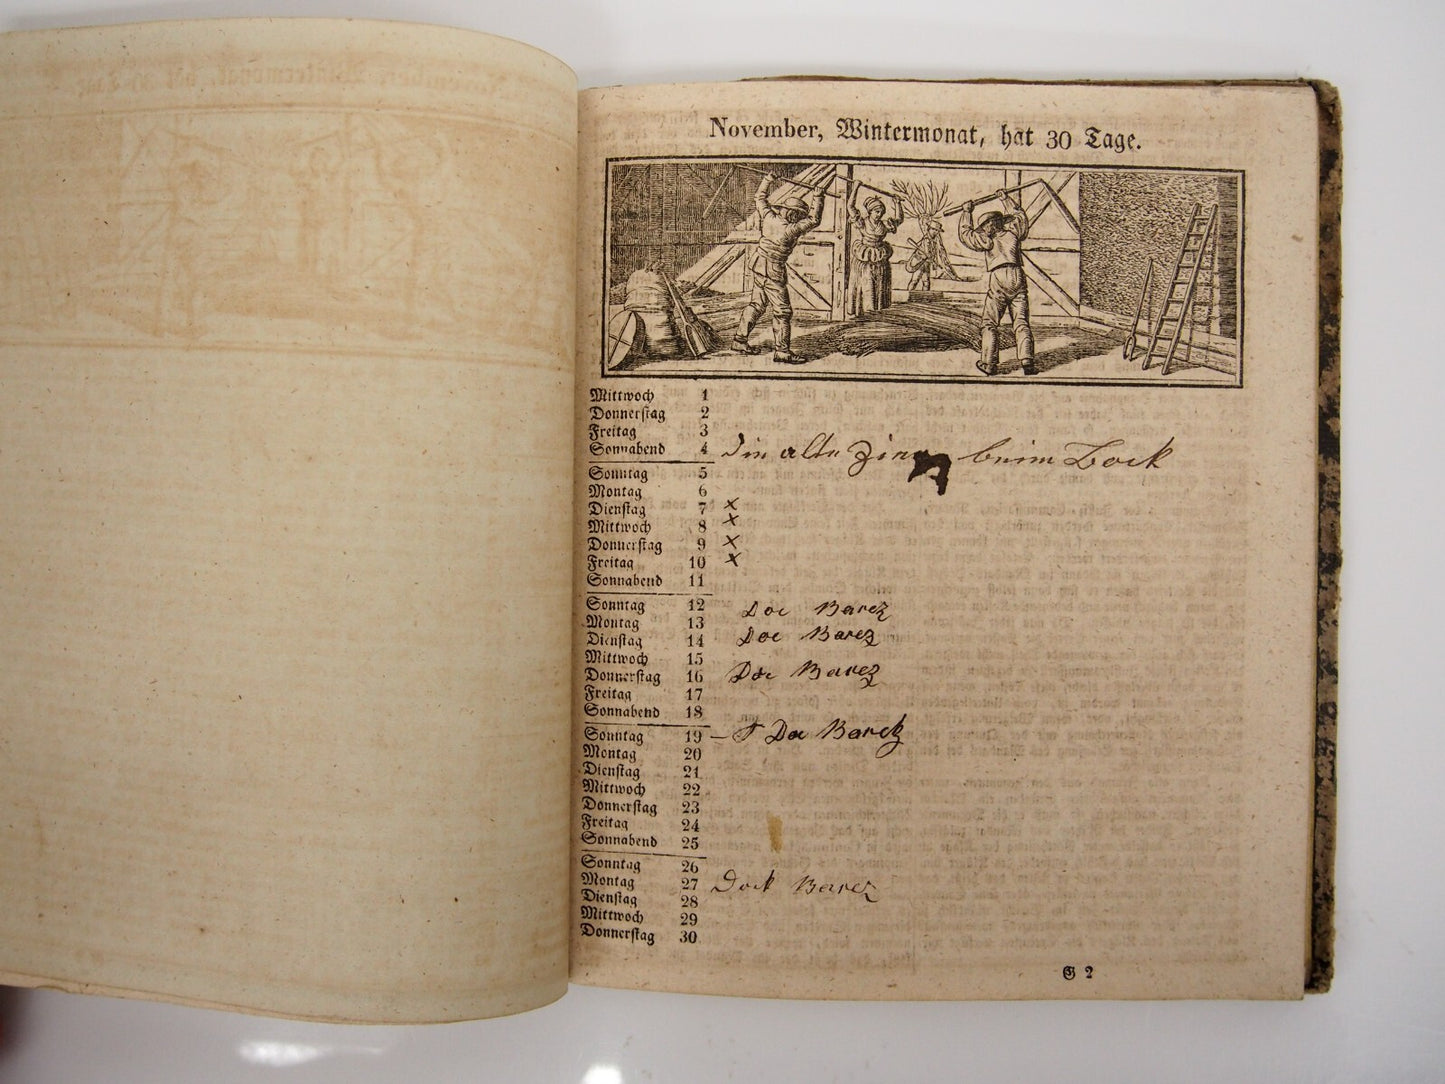 November, Wintermonat, hat 30 Tage.
Mittwoch 1
Donnerstag 2
Freitag 3
Sonnabend 4 beim Bock
Sonntag 5
Montag 6
Dienstag 7 x
Mittwoch 8 x
Donnerstag 9 x
Freitag 10 x
Sonnabend 11
Sonntag 12 Doc Barez
Montag 13
Dienstag 14 Doc Barez
Mittwoch 15
Donnerstag 16 Doc Barez
Freitag 17
Sonnabend 18
Sonntag 19 Barez
Montag 20
Dienstag 21
Mittwoch 22
Donnerstag 23
Freitag 24
Sonnabend 25
Sonntag 26
Montag 27 Dock Barez
Dienstag 28
Mittwoch 29
Donnerstag 30
G 2